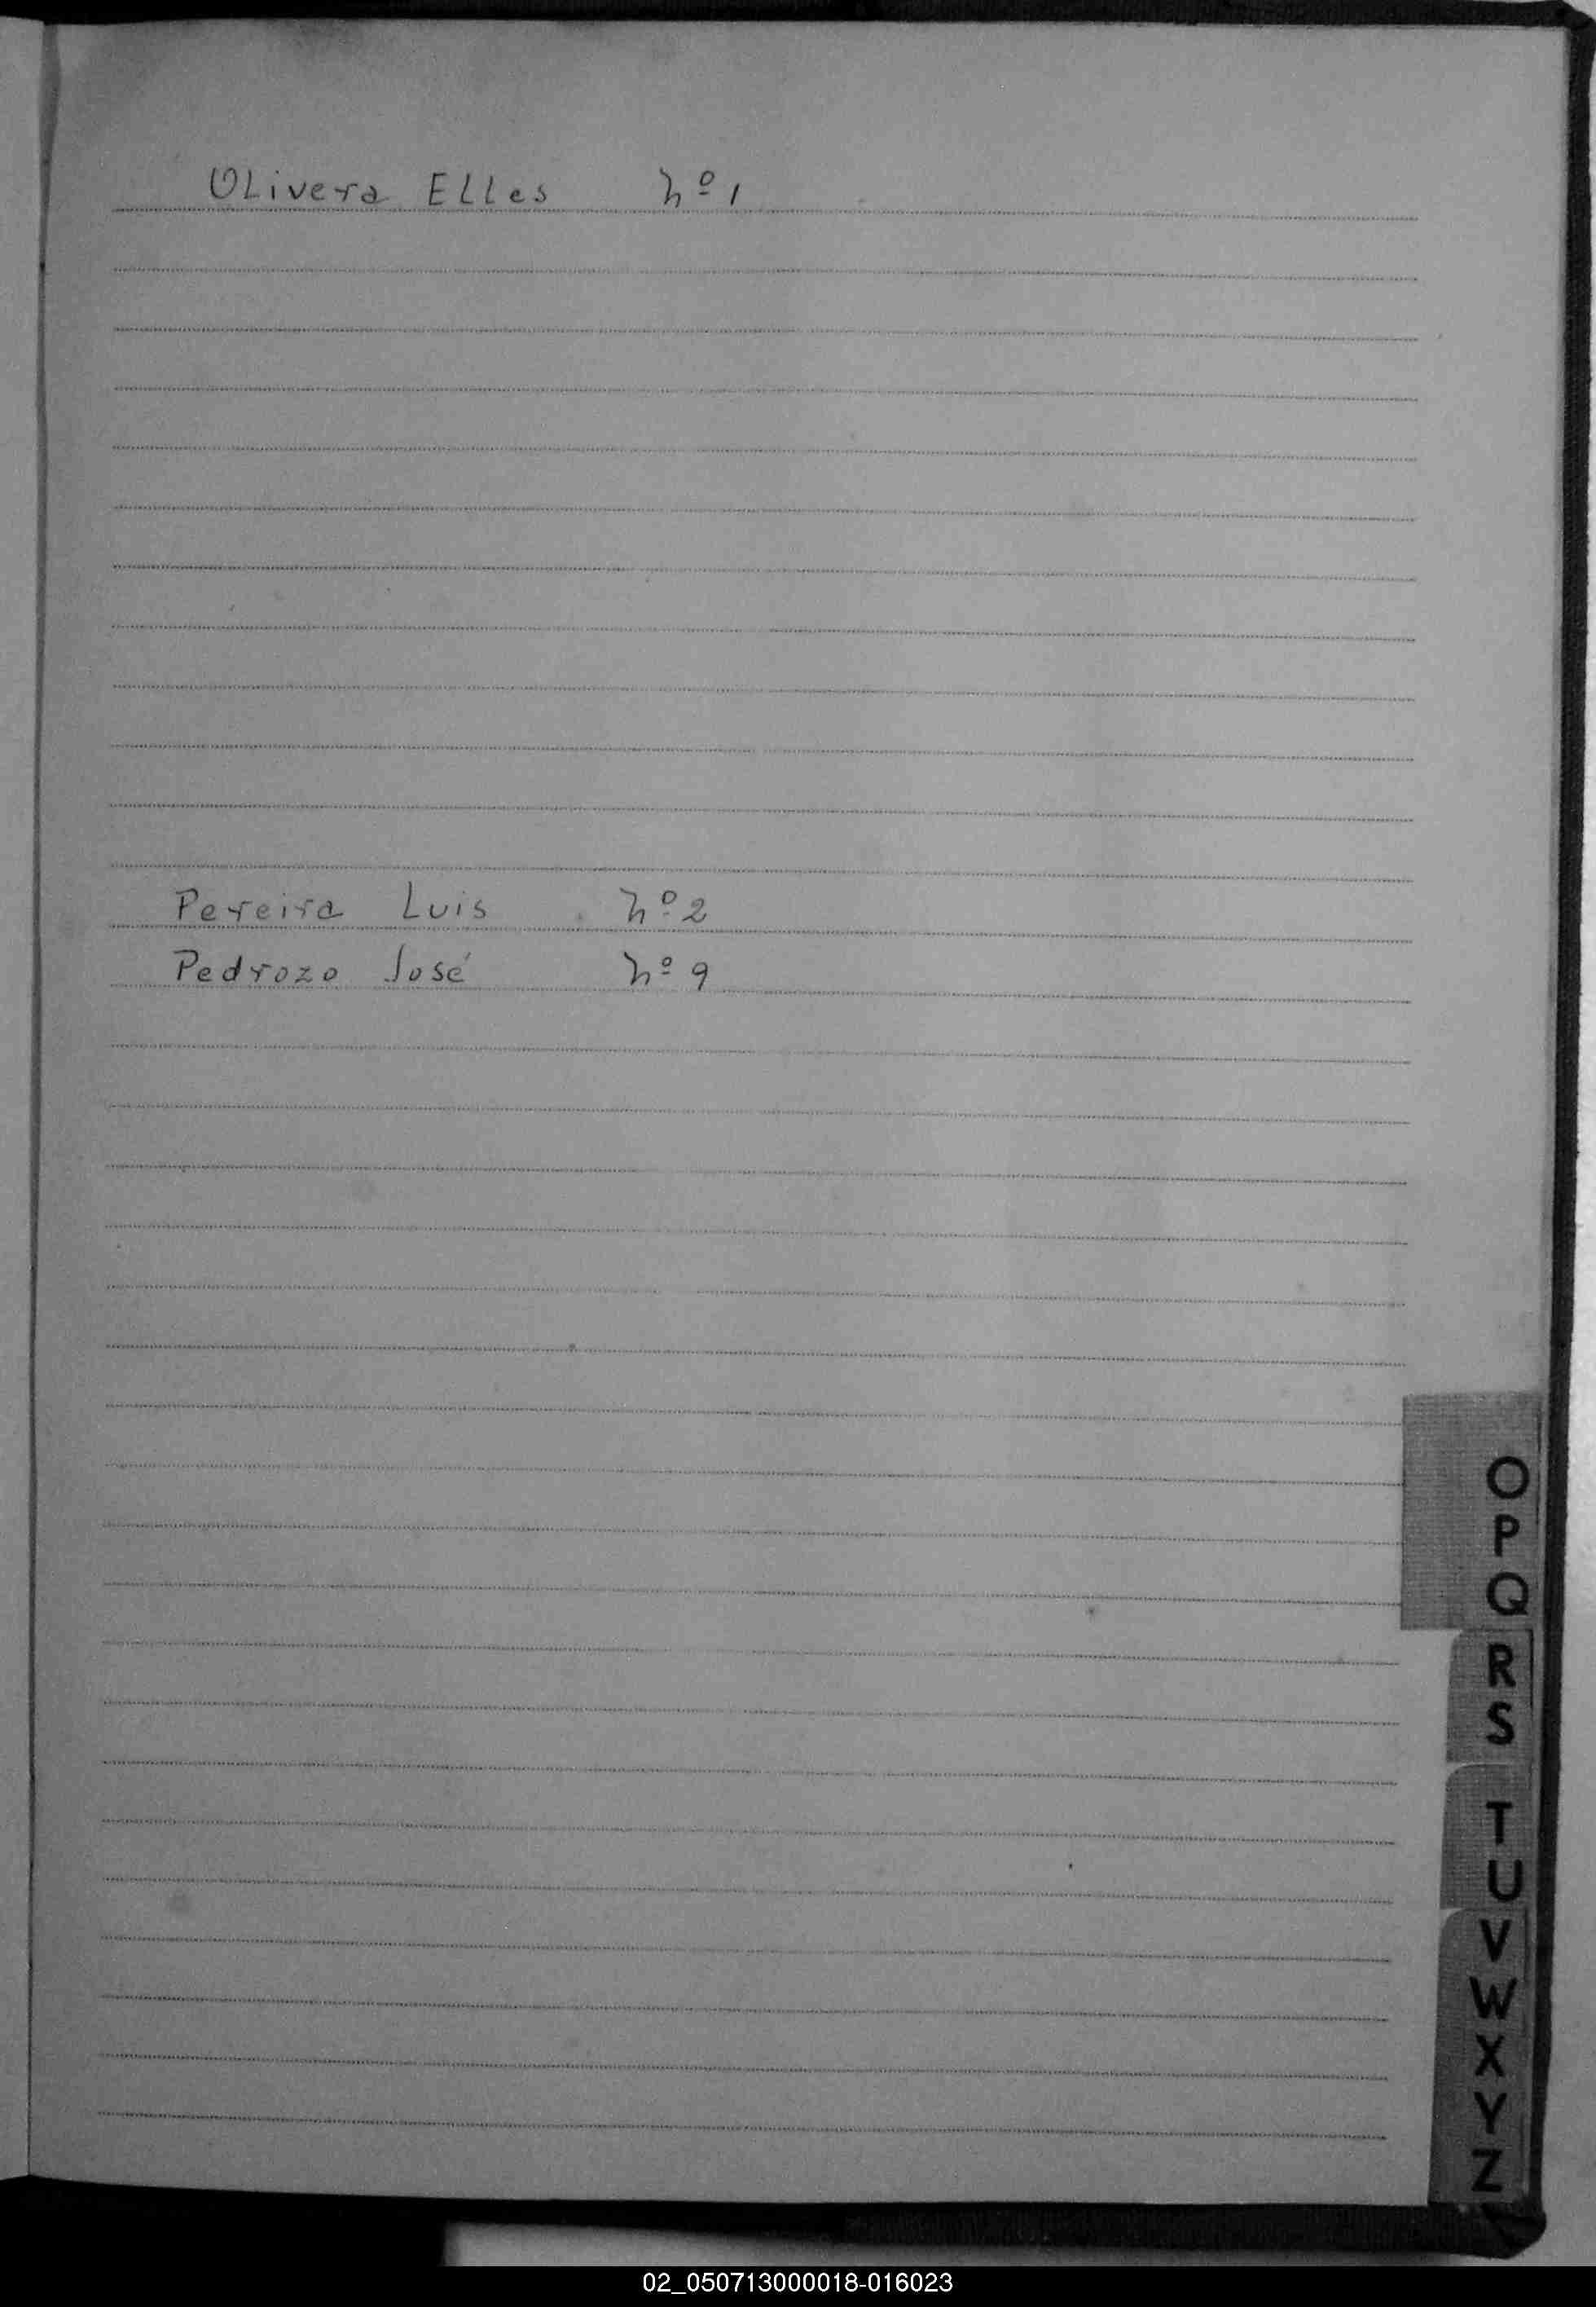 OLivera ELLes nº 1
Pereira Luis nº 2
Pedrozo José nº 9
O
P
Q
R
S
T
U
V
W
X
Y
Z
02_050713000018-016023